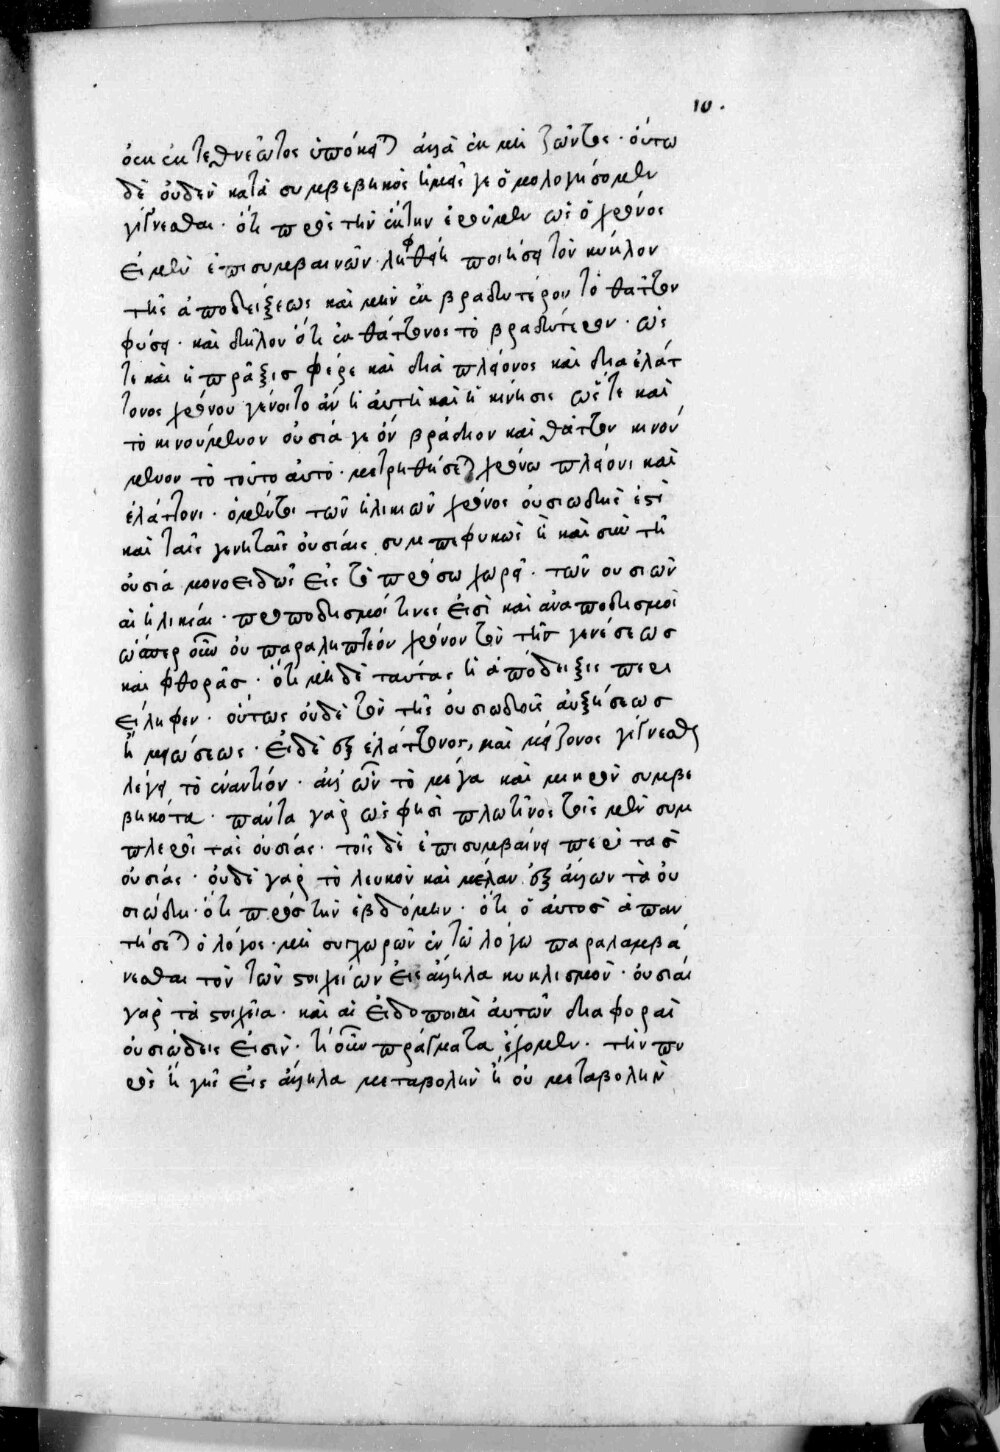 10.
ὅτι ἐκ τεθνεῶτος ὑπόκει) ἀλλὰ ἐκ μὴ ζῶντος· οὕτω
δὲ οὐδὲν κατὰ συμβεβηκὸς ἡμεῖς γε ὁμολογήσομεν
γίγνεσθαι· ὅτι πρὸς τὴν ἕκτην ἐροῦμεν ὡς ὁ χρόνος
εἰ μὲν ἐπισυμβαινῶν ληφθείη ποιήσει τὸν κύκλον
τῆς ἀποδείξεως καὶ μὴν ἐκ βραδυτέρου τὸ θᾶττον
φύσει· καὶ δῆλον ὅτι ἐκ θάττονος τὸ βραδύτερον· ὡς
τε καὶ ἡ πρᾶξις φέρε καὶ διὰ πλείονος καὶ δια ἐλάτ
τονος χρόνου γένοιτο ἂν ἡ αὐτὴ καὶ ἡ κίνησις ὥστε καὶ
τὸ κινούμενον οὐσία γε ὂν βράδιον καὶ θᾶττον κινού
μενον τὸ τοῦτο αὐτὸ· μετρηθήσε) χρόνω πλείονι καὶ
ἐλάττονι· ὁ μέντοι τῶν ἡλικιῶν χρόνος οὐσιωδής ἐστὶ
καὶ ταῖς γενηταῖς οὐσίαις συμπεφυκὼς ἢ καὶ σὺν τῇ
οὐσία μονοειδῶς εἰς τὸ πρόσω χωρεῖ· τῶν ουσιῶν
αἱ ἡλικίαι· προποδισμοί τινες εἰσὶ καὶ ἀναποδισμοὶ
ὥσπερ οὖν οὐ παραληπτέον χρόνον τὸν τῆς γενέσεως
καὶ φθορᾶς· ὅτι μηδὲ ταύτας ἡ ἀπόδειξις περι
είληφεν· οὕτως οὐδὲ τὸν τῆς οὐσιωδοῦς αὐξήσεως
ἢ μειώσεως· εἰ δὲ ἐξ ἐλάττονος, καὶ μείζονος γίγνεσθαι
λέγει τὸ ἐναντίον· ἀλλ' οὖν τὸ μέγα καὶ μικρὸν συμβε
βηκότα· πάντα γὰρ ὥς φησὶ πλωτῖνος τοῖς μὲν συμ
πληροῖ τὰς οὐσίας· τοῖς δὲ ἐπισυμβαίνει περὶ τὰς
οὐσίας· οὐδὲ γὰρ τὸ λευκὸν καὶ μέλαν ἐξ ἀλλων τὰ οὐ
σιώδη· ὅτι πρὸς τὴν ἑβδόμην· ὅτι ὁ αὐτὸς ἀπαν
τήσε) ὁ λόγος· μὴ συγχωρῶν ἐν τῶ λόγω παραλαμβά
νεσθαι τὸν τῶν στοιχείων εἰς ἄλληλα κυκλισμὸν· οὐσίαι
γὰρ τὰ στοιχεῖα· καὶ αἱ εἰδοποιαὶ ἀυτῶν διαφοραὶ
οὐσιώδεις εἰσὶν· τί οὖν πράγματα ἕξομεν· τὴν πυ
ρὸς ἢ γῆς εἰς ἄλληλα μεταβολὴν ἢ οὐ μεταβολὴν